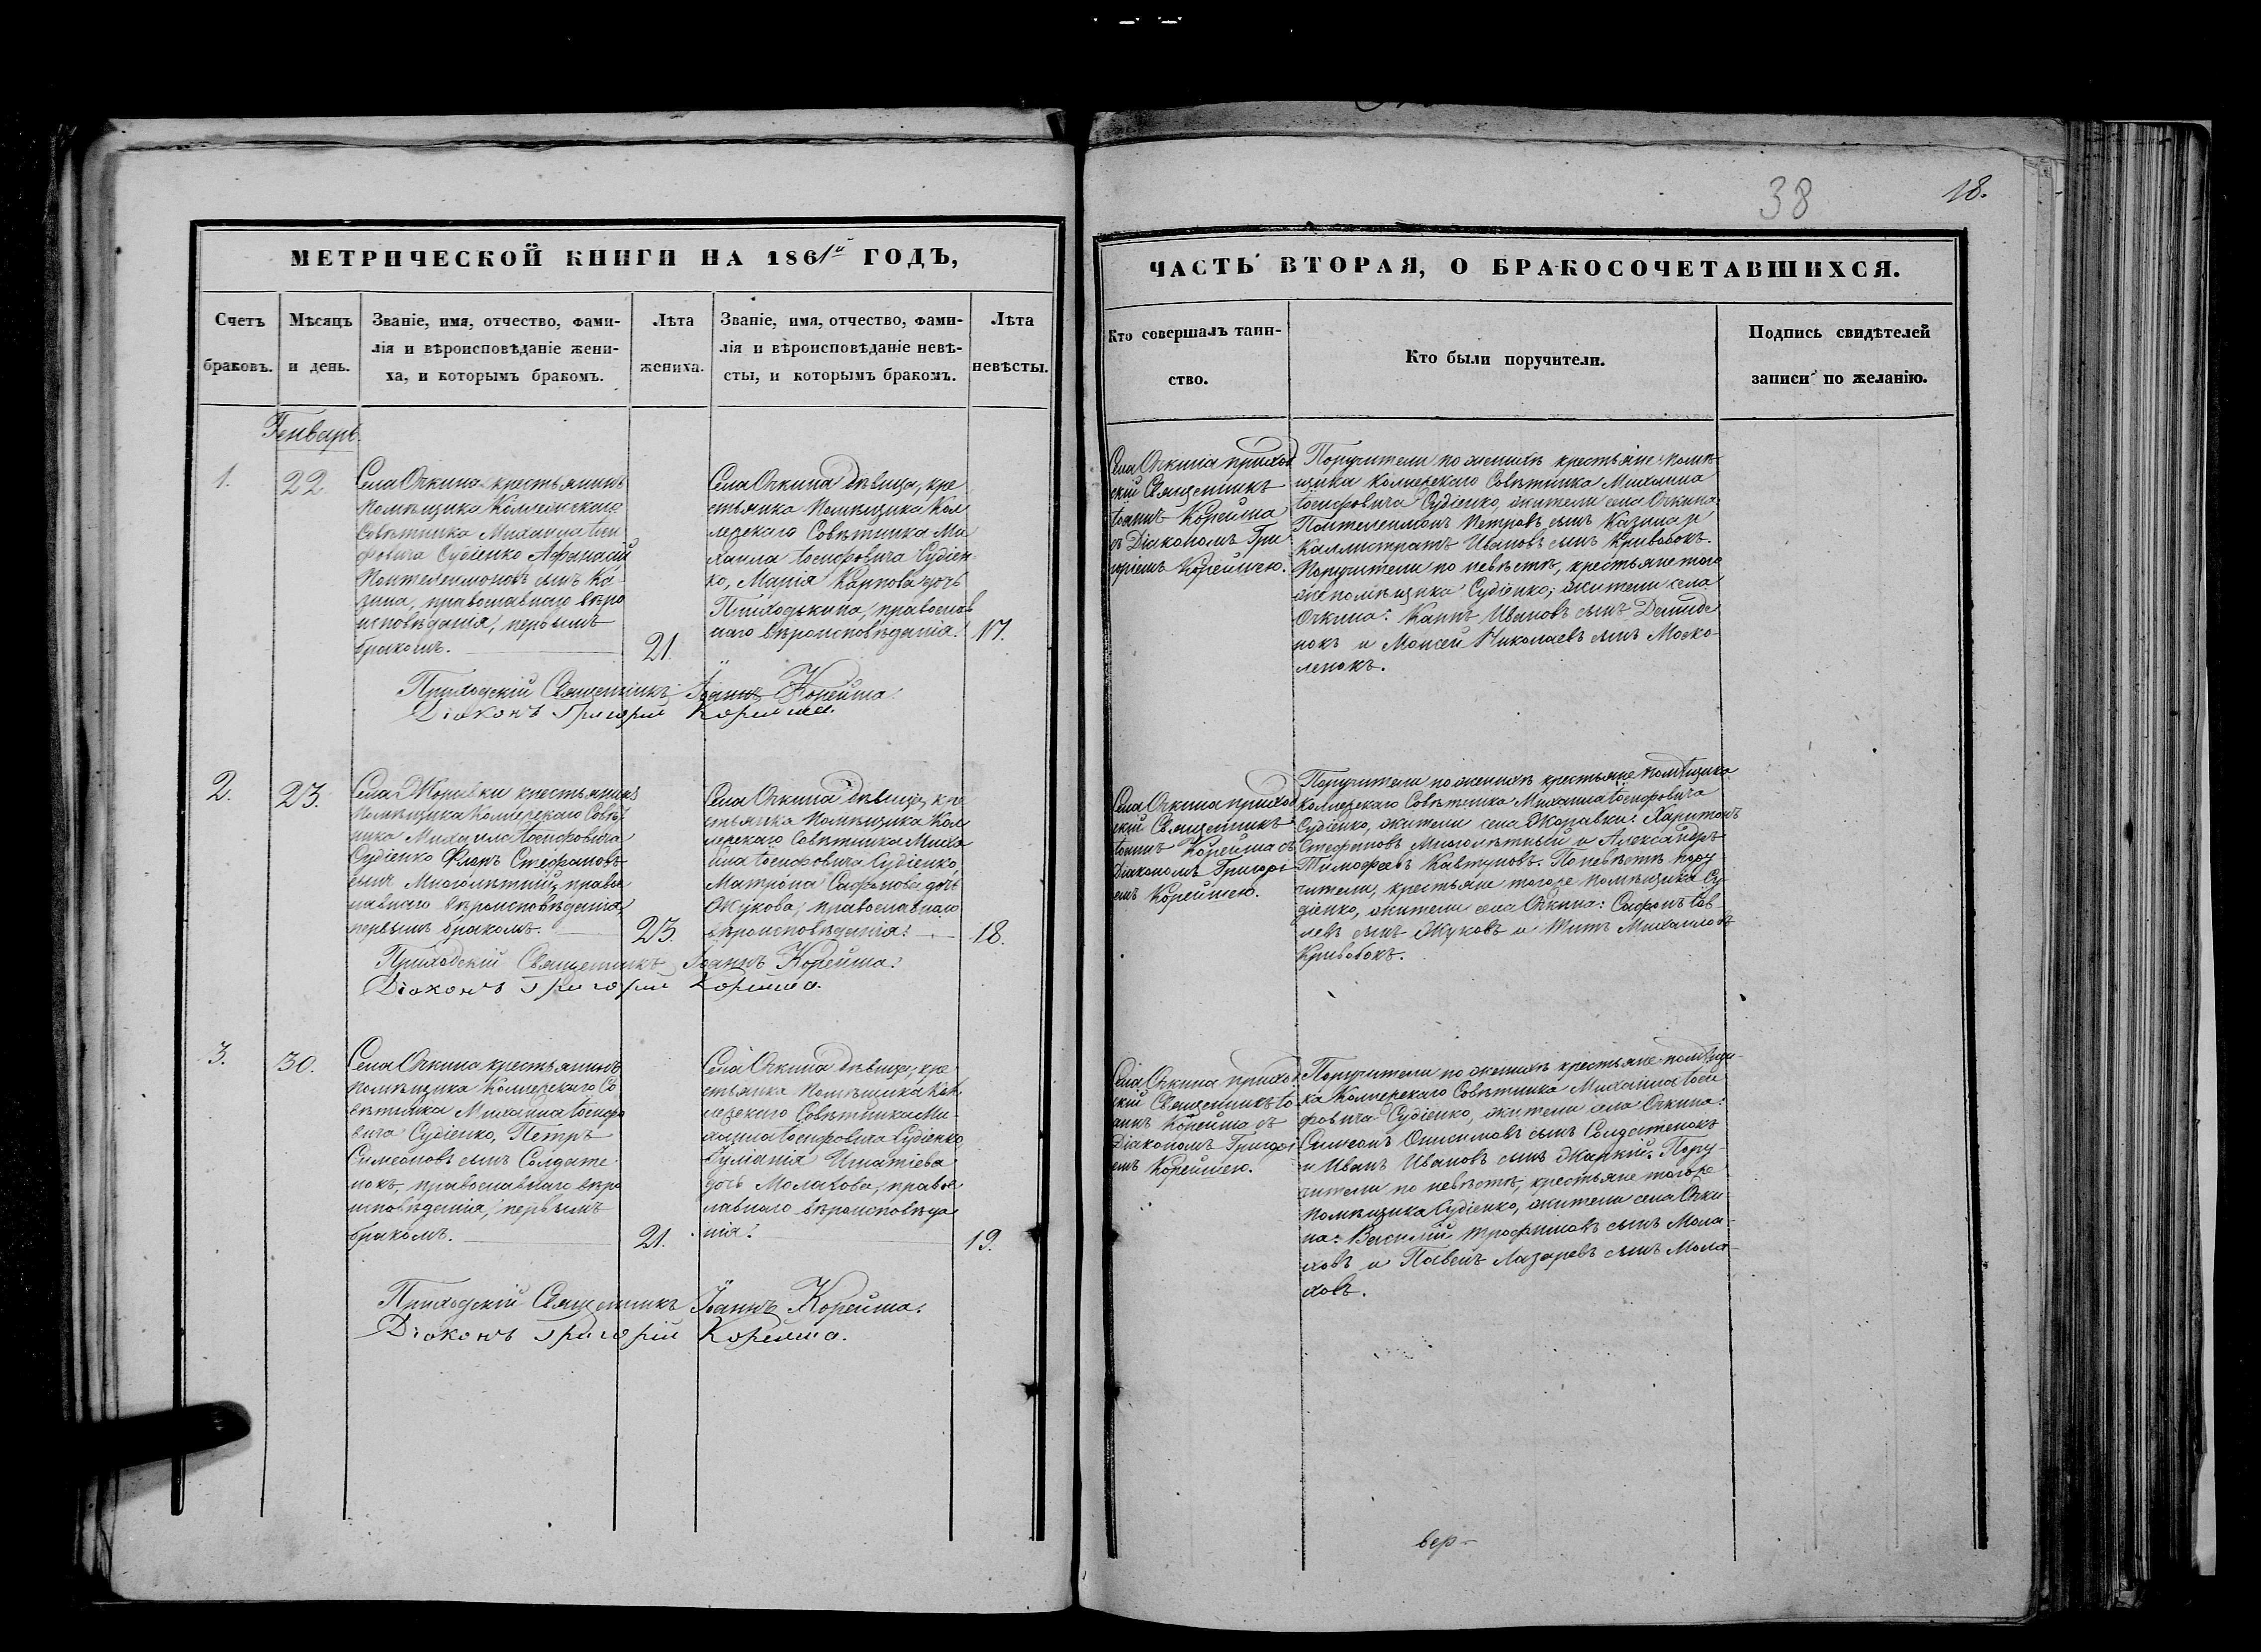 38
18.
МЕТРИЧЕСКОЙ КНИГИ НА 1861й ГОДЪ,
Счетъ браковъ.
Мѣсяцъ и день.
Званіе, имя, отчество, фами-
лія и вѣроисповѣданіе жени-
ха, и которымъ бракомъ.
Лѣта жениха.
Званіе, имя, отчество, фами-
лія и вѣроисповѣданіе невѣ-
сты, и которымъ бракомъ.
Лѣта невѣсты.
Генварь
1.
22.
Села Очкина крестьянинъ
помѣщика Коллежскаго
Совѣтника Михаила Іоси
фовича Судіенко Афанасій
Пантелеимоновъ сынъ Ка-
зина, православнаго вѣро
исповѣданія, первымъ
бракомъ.
21.
Села Очкина дѣвица, кре
стьянка помѣщика Кол
лежскаго Совѣтника Ми
хаила Іосифовича Судіен
ко, Марія Карпова дочь
Приходькина, православ
наго вѣроисповѣданія.
17.
Приходскій Священникъ Іоаннъ Корейша.
Діаконъ Григорій Корейша.
2.
23.
Села Журавки крестьянинъ
помѣщика Коллежскаго Совѣт
ника Михаила Іосифовича
Судіенко Флоръ Стефановъ
сынъ Многолѣтній, право
славнаго вѣроисповѣданія,
первымъ бракомъ.
23.
Села Очкина дѣвица, кре
стьянка помѣщика Кол
лежскаго Совѣтника Миха
ила Іосифовича Судіенко,
Матрона Сафонова дочь
Жукова, православнаго
вѣроисповѣданія.
18.
Приходскій Священникъ Іоаннъ Корейша.
Діаконъ Григорій Корейша.
3.
30.
Села Очкина крестьянинъ
помѣщика Коллежскаго Со
вѣтника Михаила Іосифо
вича Судіенко, Петръ
Симеоновъ сынъ Солдате
нокъ, православнаго вѣро
исповѣданія, первымъ
бракомъ.
21.
Села Очкина дѣвица, кре
стьянка помѣщика Кол
лежскаго Совѣтника Ми-
хаила Іосифовича Судіенко
Іуліанія Игнатіева
дочь Молахова, право
славнаго вѣроисповѣда
нія.
19.
Приходскій Священникъ Іоаннъ Корейша.
Діаконъ Григорій Корейша.
ЧАСТЬ ВТОРАЯ, О БРАКОСОЧЕТАВШИХСЯ.
Кто совершалъ таин-
ство.
Кто были поручители.
Подпись свидѣтелей
записи по желанію.
Села Очкина приход
скій Священникъ
Іоаннъ Корейша
съ Діакономъ Гри
горіемъ Корейшею.
Поручители по женихѣ крестьяне помѣ-
щика Коллежскаго Совѣтника Михаила
Іосифовича Судіенко, жители села Очкина:
Пантелеимонъ Петровъ сынъ Казина и
Каллистратъ Ивановъ сынъ Кривобокъ.
Поручители по невѣстѣ, крестьяне того
же помѣщика Судіенко, жители села
Очкина: Карпъ Ивановъ сынъ Демиде
нокъ и Моисей Николаевъ сынъ Моско-
ленокъ.
Села Очкина приход
скій Священникъ
Іоаннъ Корейша съ
Діакономъ Григорі
емъ Корейшею.
Поручители по женихѣ крестьяне помѣщика
Коллежскаго Совѣтника Михаила Іосифовича
Судіенко, жители села Журавки: Харитонъ
Стефановъ Многолѣтній и Александръ
Тимофеевъ Кавтуновъ. По невѣстѣ пору
чители, крестьяне тогоже помѣщика Су
діенко, жители села Очкина: Сафонъ Іов
левъ сынъ Жуковъ и Титъ Михаиловъ
Кривобокъ.
Села Очкина приход
скій Священникъ Іо
аннъ Корейша съ
Діакономъ Григорі
емъ Корейшею.
Поручители по женихѣ крестьяне помѣщи-
ка Коллежскаго Совѣтника Михаила Іоси
фовича Судіенко, жители села Очкина:
Симеонъ Онисимовъ сынъ Солдатенокъ
и Иванъ Ивановъ сынъ Жаркій. Пору-
чители по невѣстѣ, крестьяне тогоже
помѣщика Судіенко, жители села Очки-
на: Василій Трофимовъ сынъ Мола-
ховъ и Павелъ Лазаревъ сынъ Мола-
ховъ.
вер-